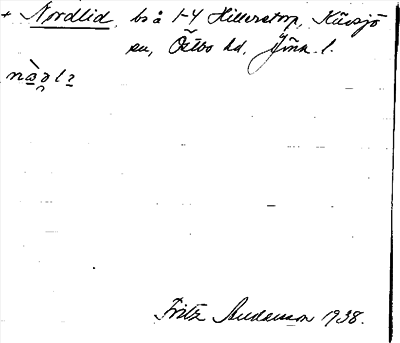 + Nordlid, bs å 1-4 Hillerstorp, Kävsjö
sn, Östbo hd, Jönk. l.
Fritz Anderson 1938.